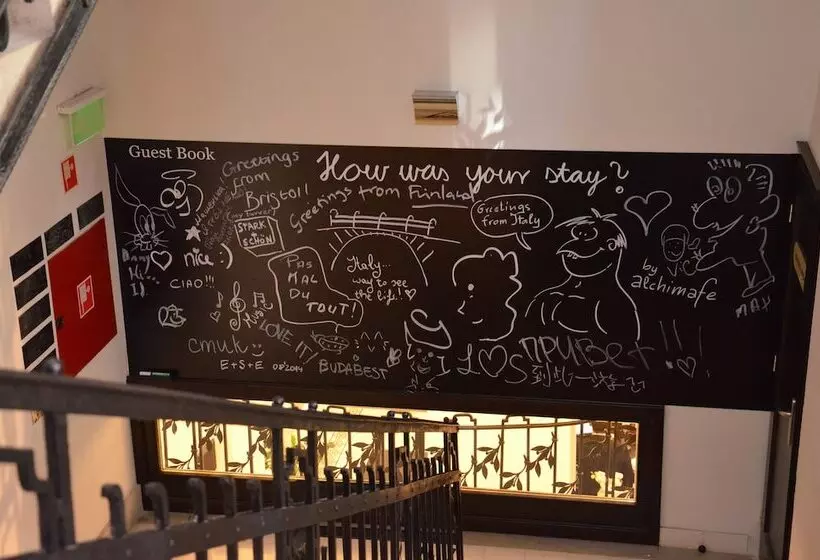 Guest Book
How was your stay?
Greetings
from
Bristol!
Greetings from Finland
STARK
SCHÖN
Greetings
from Italy
nice :)
CIAO!!!
PAS
MAL
DU
TOUT!
Italy...
way to see
the life!
by
alchimafe
MAX
LOVE IT!
cmuk
E+S+E 08'2014
BUDABEST
L♡S
ПРИВет!!!
到此一游